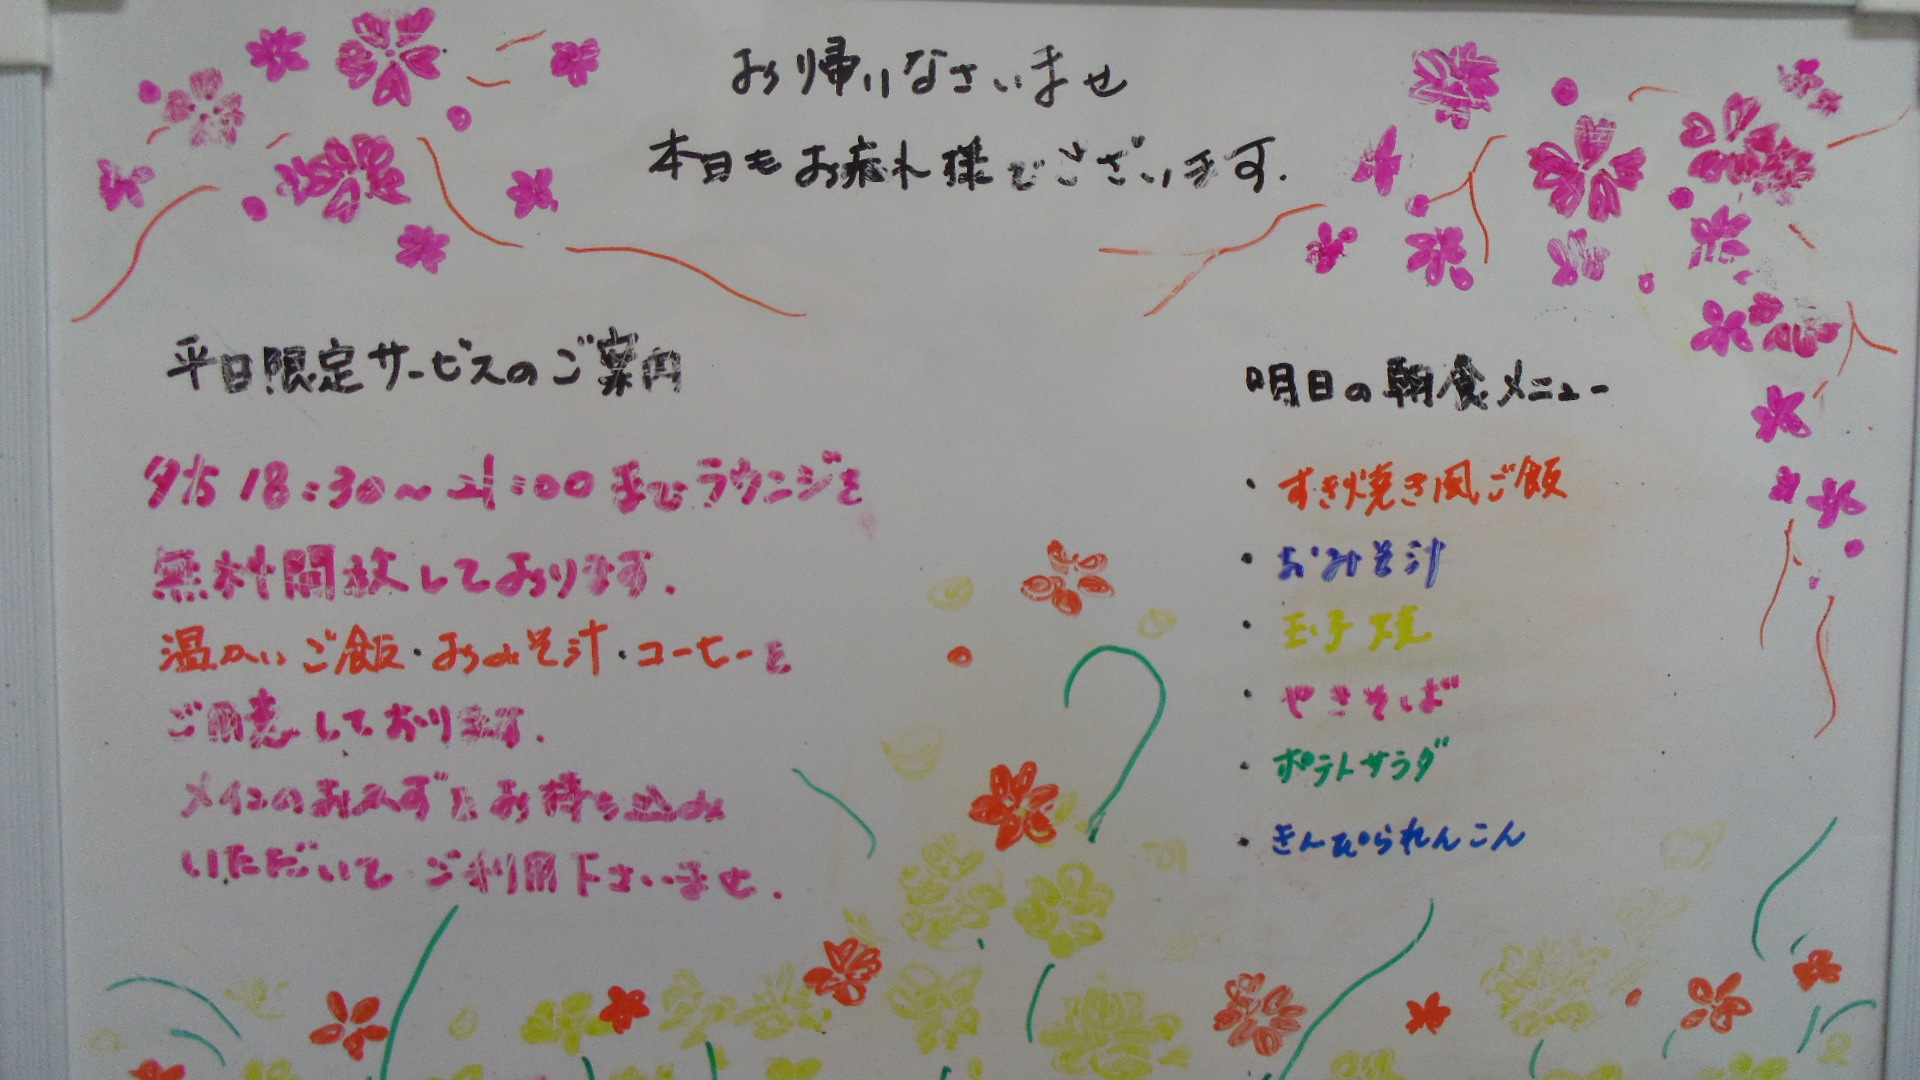 お帰りなさいませ
本日もお疲れ様でございます.
平日限定サービスのご案内
夕方18:30～21:00までラウンジを
無料開放しております.
温かいご飯・おみそ汁・コーヒーを
ご用意しております.
メインのおかずをお持ち込み
いただいてご利用下さいませ.
明日の朝食メニュー
・すき焼き風ご飯
・おみそ汁
・玉子焼
・やきそば
・ポテトサラダ
・きんぴられんこん